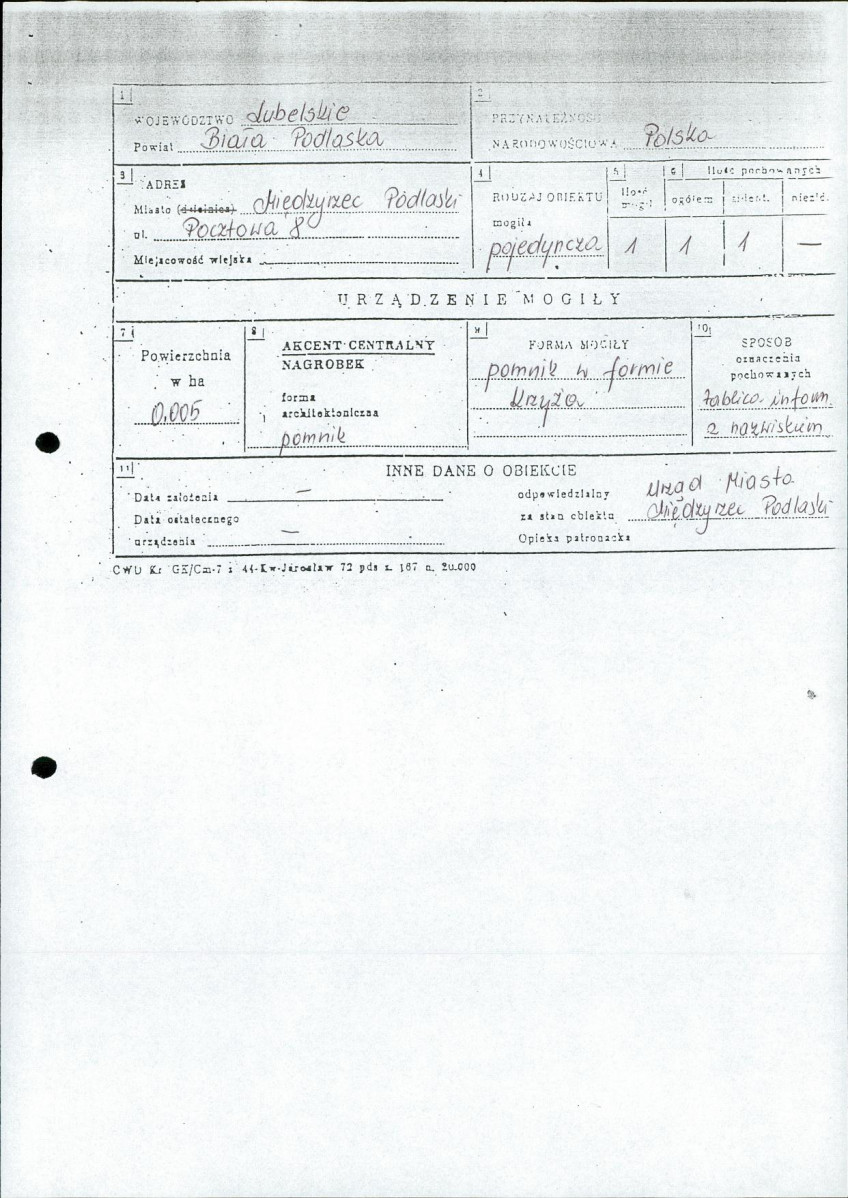 1
WOJEWÓDZTWO Lubelskie
Powiat Biała Podlaska
2
PRZYNALEŻNOŚĆ
NARODOWOŚCIOWA Polska
3
ADRES
Miasto (dzielnica) Międzyrzec Podlaski
ul. Pocztowa 8
Miejscowość wiejska
4
RODZAJ OBIEKTU
mogiła
pojedyncza
5
Ilość
mogił
1
6 Ilość pochowanych
ogółem zident. niezid.
1 1 —
URZĄDZENIE MOGIŁY
7
Powierzchnia
w ha
0.005
8
AKCENT CENTRALNY
NAGROBEK
forma
architektoniczna
pomnik
9
FORMA MOGIŁY
pomnik w formie
krzyża
10
SPOSÓB
oznaczenia
pochowanych
tablica inform.
z nazwiskiem
11
INNE DANE O OBIEKCIE
Data założenia —
Data ostatecznego
urządzenia —
odpowiedzialny Urząd Miasta
za stan obiektu Międzyrzec Podlaski
Opieka patronacka
CWD Kr GK/Cm-7 i 44-Kw-Jarosław 72 pds z. 167 n. 20.000